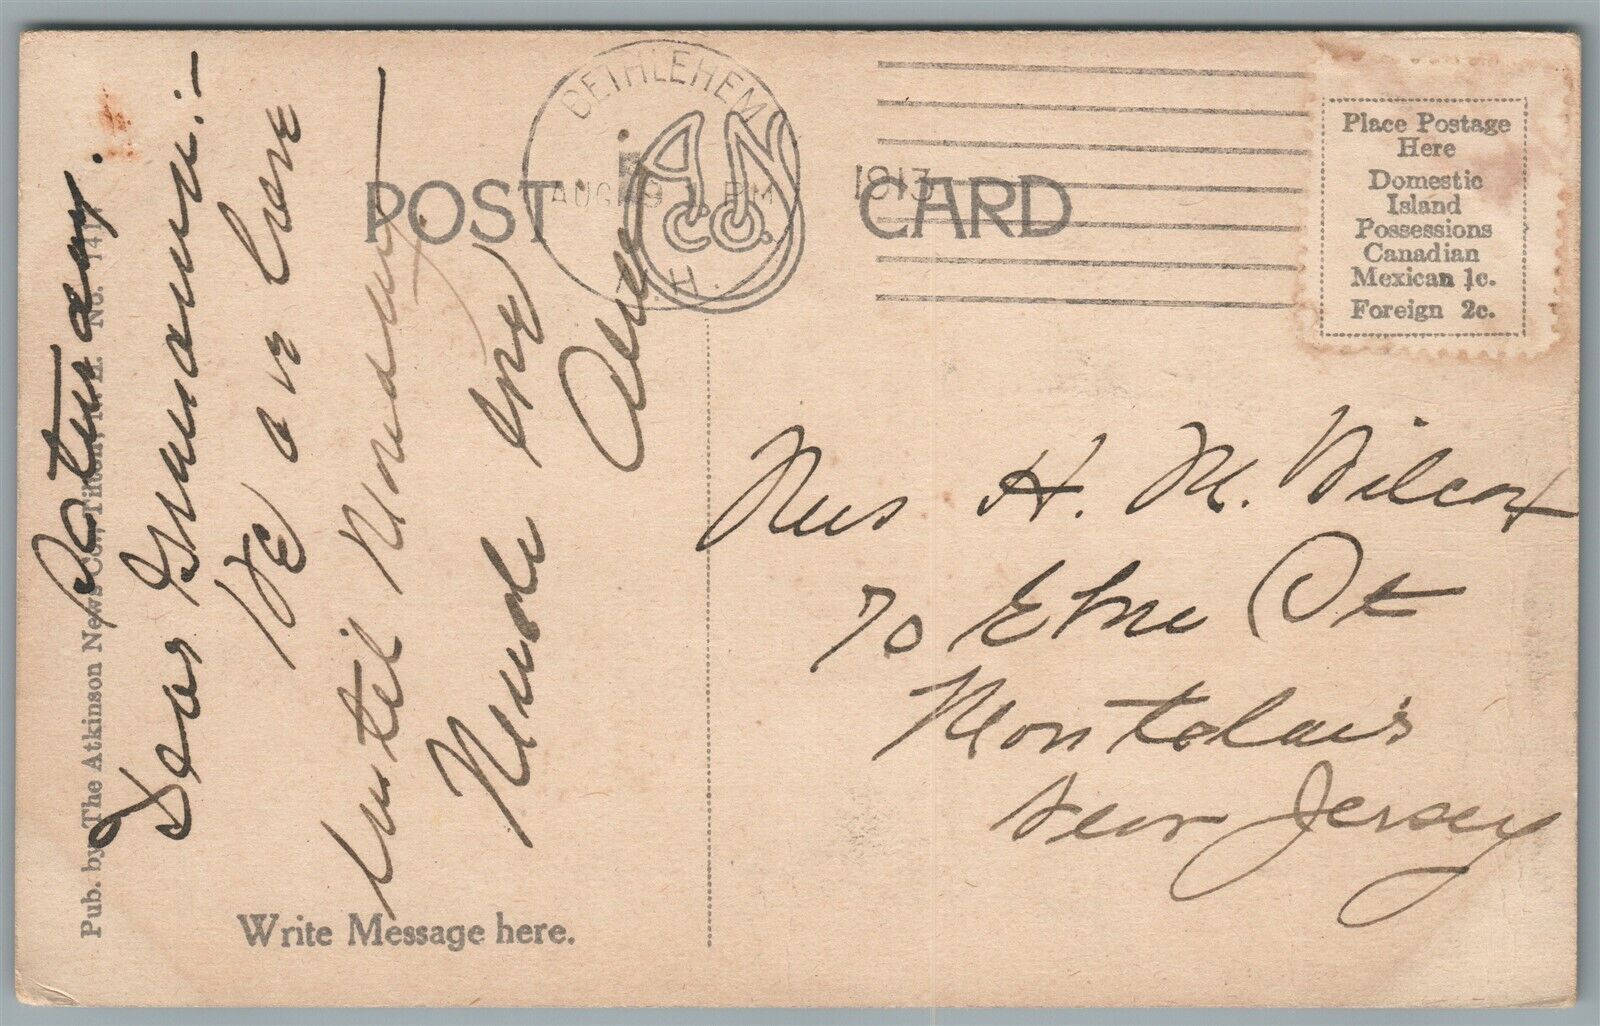 POST CARD
A.N. Co.
BETHLEHEM
AUG 9
1 PM
1913
N.H.
Place Postage
Here
Domestic
Island
Possessions
Canadian
Mexican 1c.
Foreign 2c.
Pub. by The Atkinson News Co., Tilton, N. H. No.
Saturday.
Dear Grandma:-
We are here
until Monday
Much love
Mrs H. M. Wilcox
70 Elm St
Montclair
New Jersey
Write Message here.